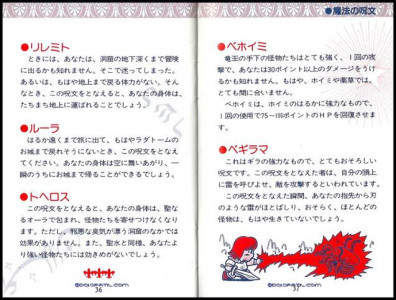 ●魔法の呪文
●リレミト
ときには、あなたは、洞窟の地下深くまで冒険
に出るかも知れません。そこで迷ってしまった。
あるいは、もはや地上まで戻る体力がない。そん
なとき、この呪文をとなえると、あなたの身体は、
たちまち地上に運ばれることでしょう。
●ルーラ
はるか遠くまで旅に出て、もはやラダトームの
お城まで戻れそうにないとき、この呪文をとなえ
てください。あなたの身体は空に舞いあがり、一
瞬のうちにお城まで帰ることができるでしょう。
●トヘロス
この呪文をとなえると、あなたの身体は、聖な
るオーラで包まれ、怪物たちを寄せつけなくなり
ます。ただし、邪悪な臭気が漂う洞窟のなかでは
効果がありません。また、聖水と同様、あなたよ
り強い怪物たちには効きめがないでしょう。
36
●ベホイミ
竜王の手下の怪物たちはとても強く、1回の攻
撃で、あなたは30ポイント以上のダメージをうけ
るかも知れません。もはや、ホイミや薬草では、
とても間に合いません。
ベホイミは、ホイミのはるかに強力なもので、
1回の使用で75〜100ポイントのHPを回復させま
す。
●ベギラマ
これはギラの強力なもので、とてもおそろしい
呪文です。この呪文をとなえた者は、自分の頭上
に雷を呼びよせ、敵を攻撃するといわれています。
この呪文をとなえた瞬間、あなたの指先から刃
のような雷がほとばしり、おそらく、ほとんどの
怪物は、もはや生きていないでしょう。
37